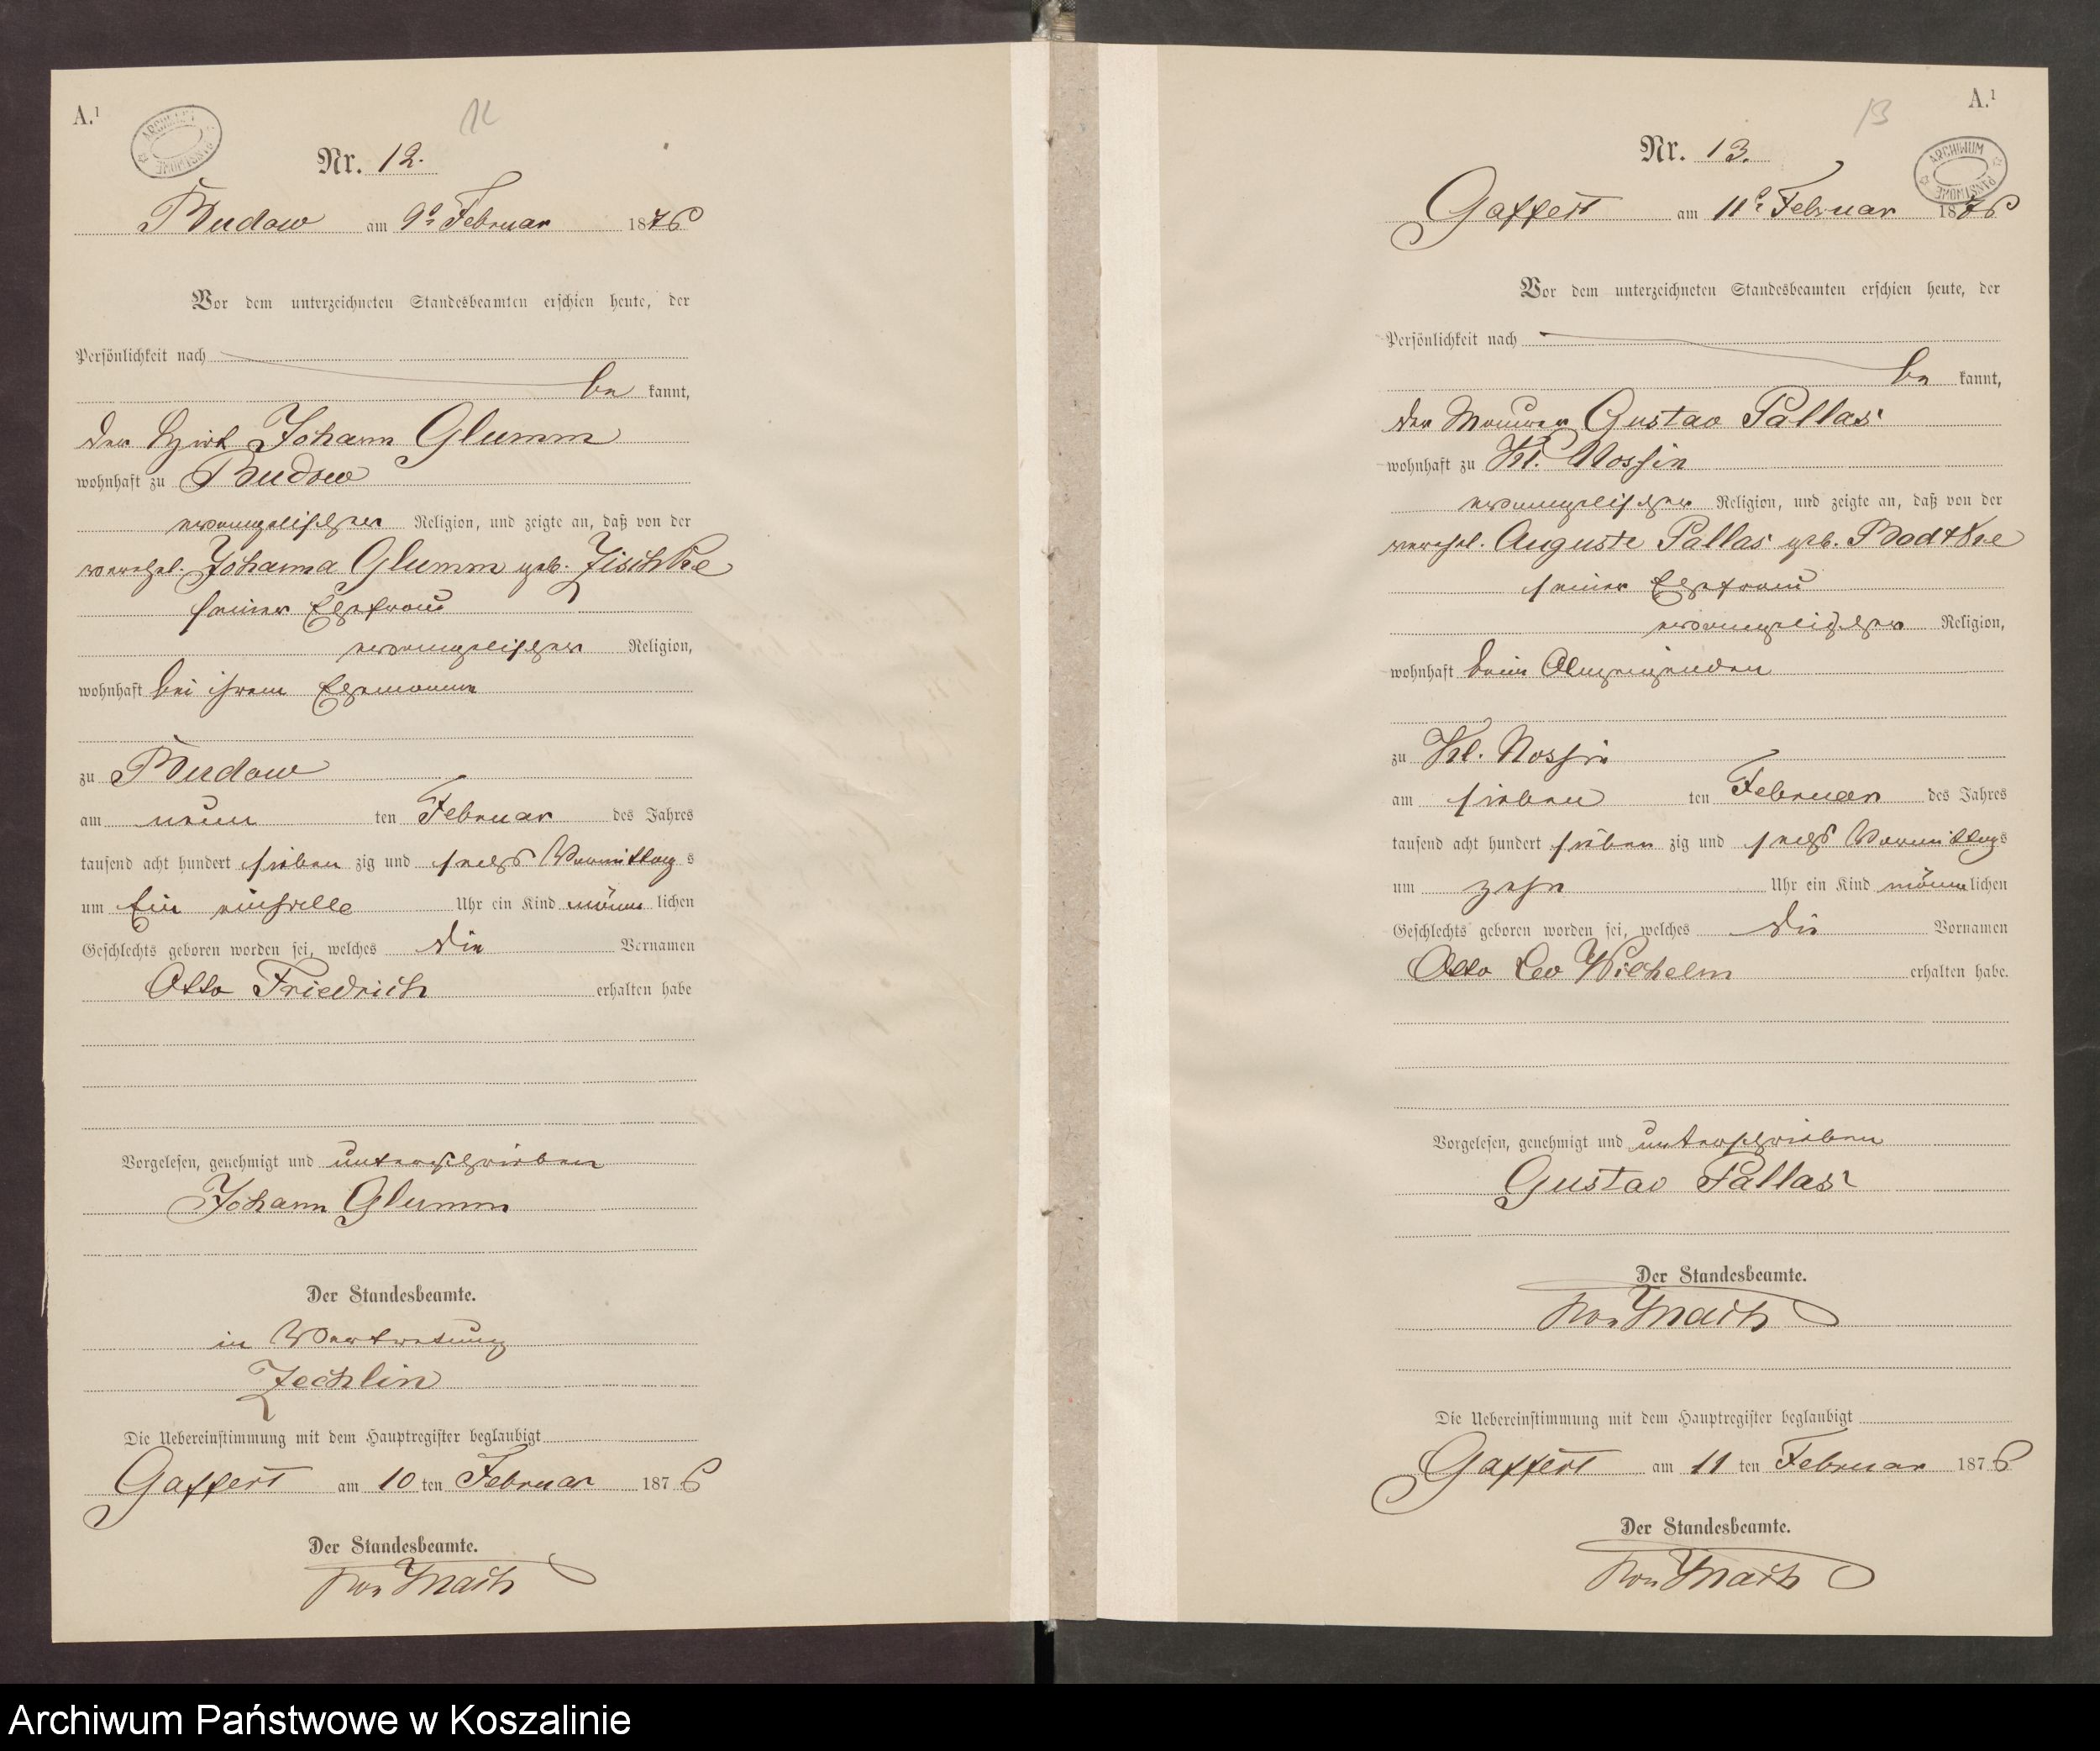 A.¹
ARCHIWUM PAŃSTWOWE
12
Nr. 12.
Budow am 9ᵗ Februar 1876
Vor dem unterzeichneten Standesbeamten erschien heute, der
Persönlichkeit nach
be kannt,
der Hirt Johann Glumm
wohnhaft zu Budow
evangelischer Religion, und zeigte an, daß von der
verehel. Johanna Glumm geb. Zischke
seiner Ehefrau
evangelischer Religion,
wohnhaft bei ihrem Ehemanne
zu Budow
am neun ten Februar des Jahres
tausend acht hundert sieben zig und sechs Vormittag s
um Ein einhalb Uhr ein Kind männ lichen
Geschlechts geboren worden sei, welches die Vornamen
Otto Friedrich erhalten habe
Vorgelesen, genehmigt und unterschrieben
Johann Glumm
Der Standesbeamte.
in Vertretung
Zechlin
Die Uebereinstimmung mit dem Hauptregister beglaubigt
Gaffert am 10 ten Februar 1876
Der Standesbeamte.
von Mach
A.¹
13
ARCHIWUM PAŃSTWOWE
Nr. 13.
Gaffert am 11ᵗ Februar 1876
Vor dem unterzeichneten Standesbeamten erschien heute, der
Persönlichkeit nach
be kannt,
der Maurer Gustav Pallas
wohnhaft zu Kl. Nossin
evangelischer Religion, und zeigte an, daß von der
verehel. Auguste Pallas geb. Radtke
seiner Ehefrau
evangelischer Religion,
wohnhaft beim Anzeigenden
zu Kl. Nossin
am sieben ten Februar des Jahres
tausend acht hundert sieben zig und sechs Vormittags
um zehn Uhr ein Kind männlichen
Geschlechts geboren worden sei, welches die Vornamen
Otto Leo Wilhelm erhalten habe.
Vorgelesen, genehmigt und unterschrieben
Gustav Pallas
Der Standesbeamte.
von Mach
Die Uebereinstimmung mit dem Hauptregister beglaubigt
Gaffert am 11 ten Februar 1876
Der Standesbeamte.
von Mach
Archiwum Państwowe w Koszalinie